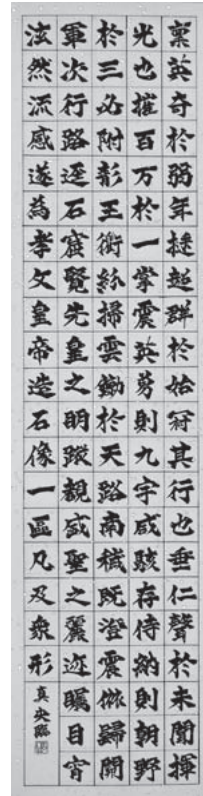 稟英奇於弱年挺超群於始冠其行也垂仁聲於未聞揮
光也摧百万於一掌震英勇則九宇咸駭存侍納則朝野
於三必附彰王衢紛掃雲鋤於天路南穢既澄震旅歸闕
軍次行路逕石窟覽先皇之明蹤覩盛聖之麗迹矚目霄
泫然流感遂為孝文皇帝造石像一區凡及衆形
真央臨